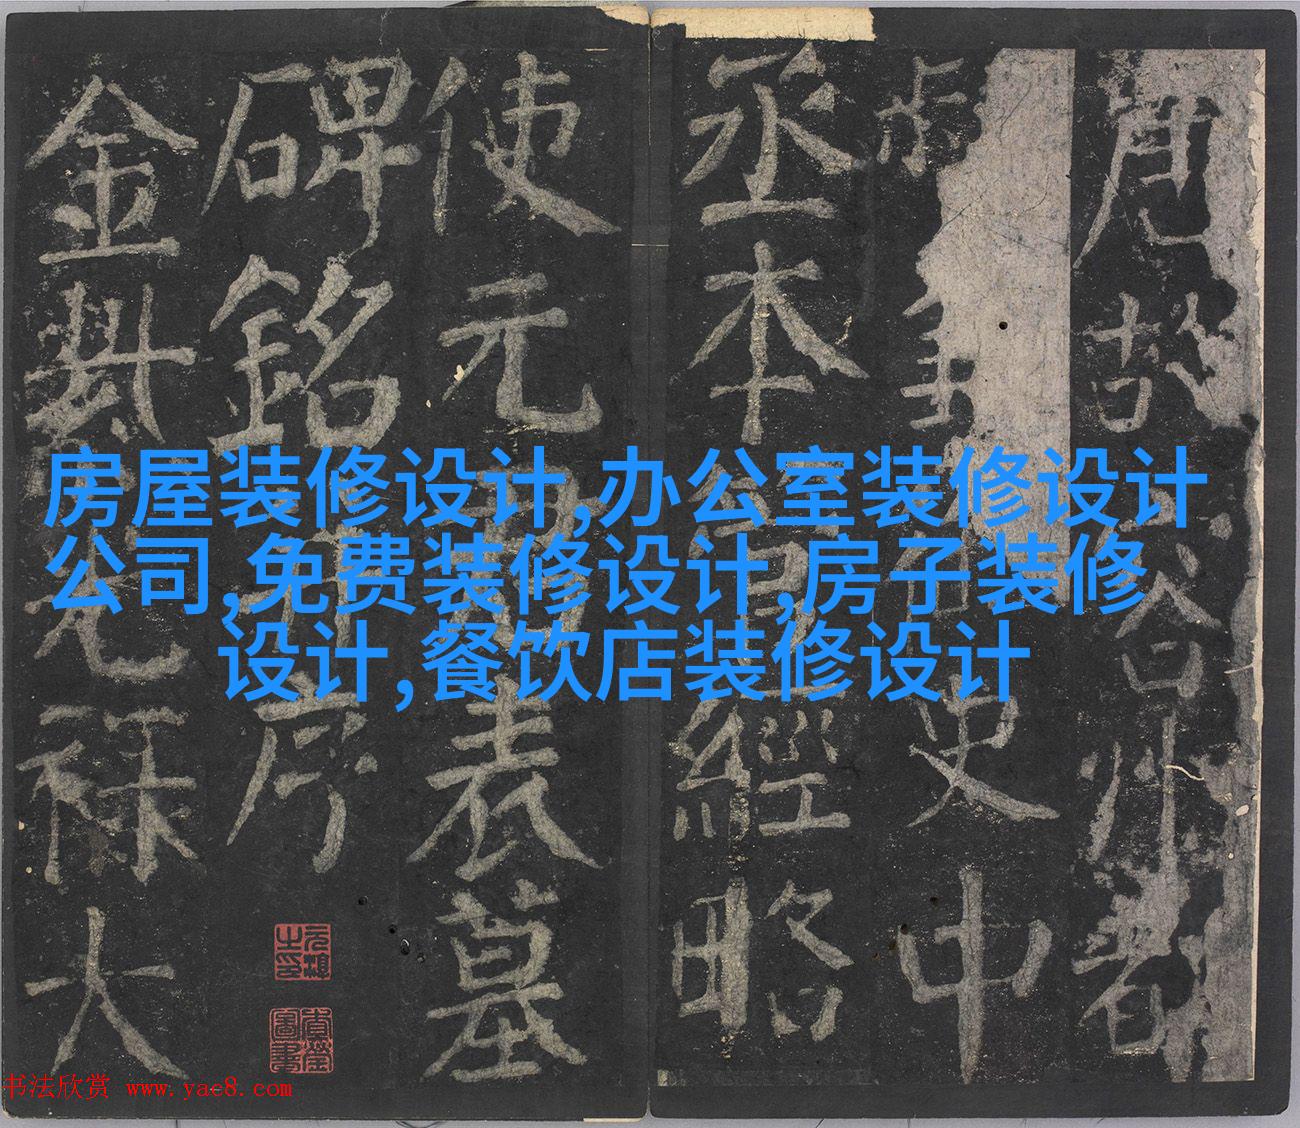 唐故容州都
史中
丞本管經略
使元君表墓
碑銘并序
金紫光祿大
房屋装修设计,办公室装修设计
公司,免费装修设计,房子装修
设计,餐饮店装修设计
书法欣赏 www.yac8.com